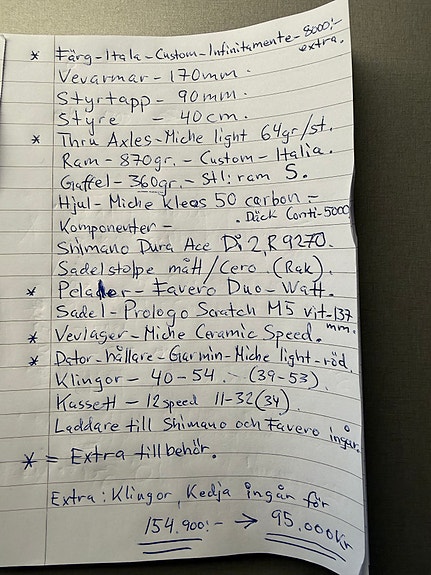 * Färg - Itala - Custom - Infinitamente - 8000:- extra.
Vevarmar - 170mm.
Styrtapp - 90mm.
Styre - 40cm.
* Thru Axles - Miche light 64gr/st.
Ram - 870gr. - Custom - Italia.
Gaffel - 360gr. - Stl: ram S.
Hjul - Miche kleos 50 carbon -
Komponenter - . Däck Conti-5000
Shimano Dura Ace Di2, R9270.
Sadelstolpe mått/Cero. (Rak).
* Pedaler - Favero Duo - Watt.
Sadel - Prologo Scratch M5 vit-137 mm.
* Vevlager - Miche Ceramic Speed.
* Dator-hållare - Garmin - Miche light - röd.
Klingor - 40-54. (39-53).
Kassett - 12speed 11-32(34).
Laddare till Shimano och Favero ingår.
* = Extra tillbehör.
Extra: Klingor, Kedja ingår för
154.900:- → 95.000Kr